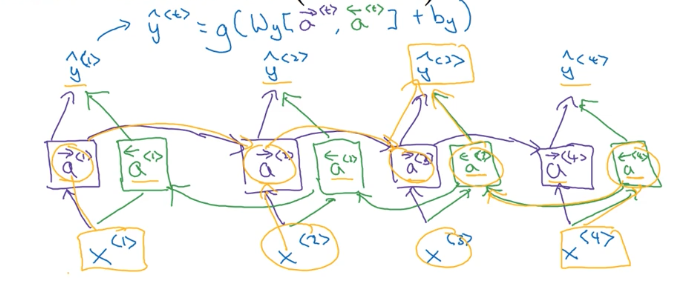 ŷ<1> → ŷ<t> = g(Wy[a→<t>, a←<t>] + by)
ŷ<1> ŷ<2> ŷ<3> ŷ<4>
a→<1> a←<1> a→<2> a←<2> a→<3> a←<3> a→<4> a←<4>
x<1> x<2> x<3> x<4>